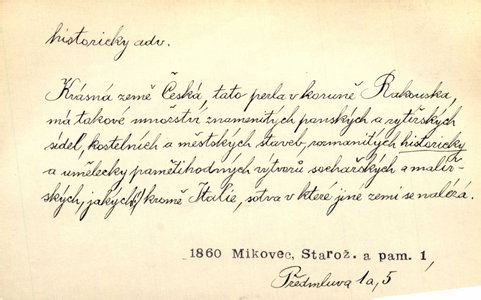 historicky adv.
Krásná země Česká, tato perla v koruně Rakouska,
má takové množství znamenitých panských a rytířských
sídel, kostelních a městských staveb, rozmanitých historicky
a umělecky pamětihodných výtvorů sochařských a malíř-
ských, jakých(!) kromě Italie, sotva v které jiné zemi se nalézá.
1860 Mikovec, Starož. a pam. 1,
Předmluva 1a, 5